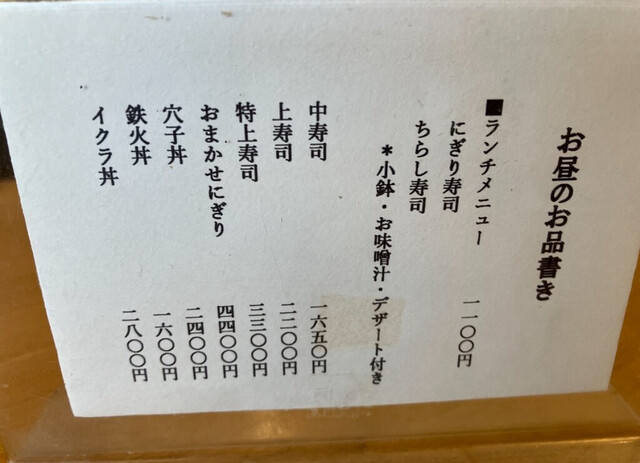 お昼のお品書き
■ランチメニュー
にぎり寿司 一一〇〇円
ちらし寿司
＊小鉢・お味噌汁・デザート付き
中寿司 一六五〇円
上寿司 二二〇〇円
特上寿司 三三〇〇円
おまかせにぎり 四四〇〇円
穴子丼 二四〇〇円
鉄火丼 一六〇〇円
イクラ丼 二八〇〇円